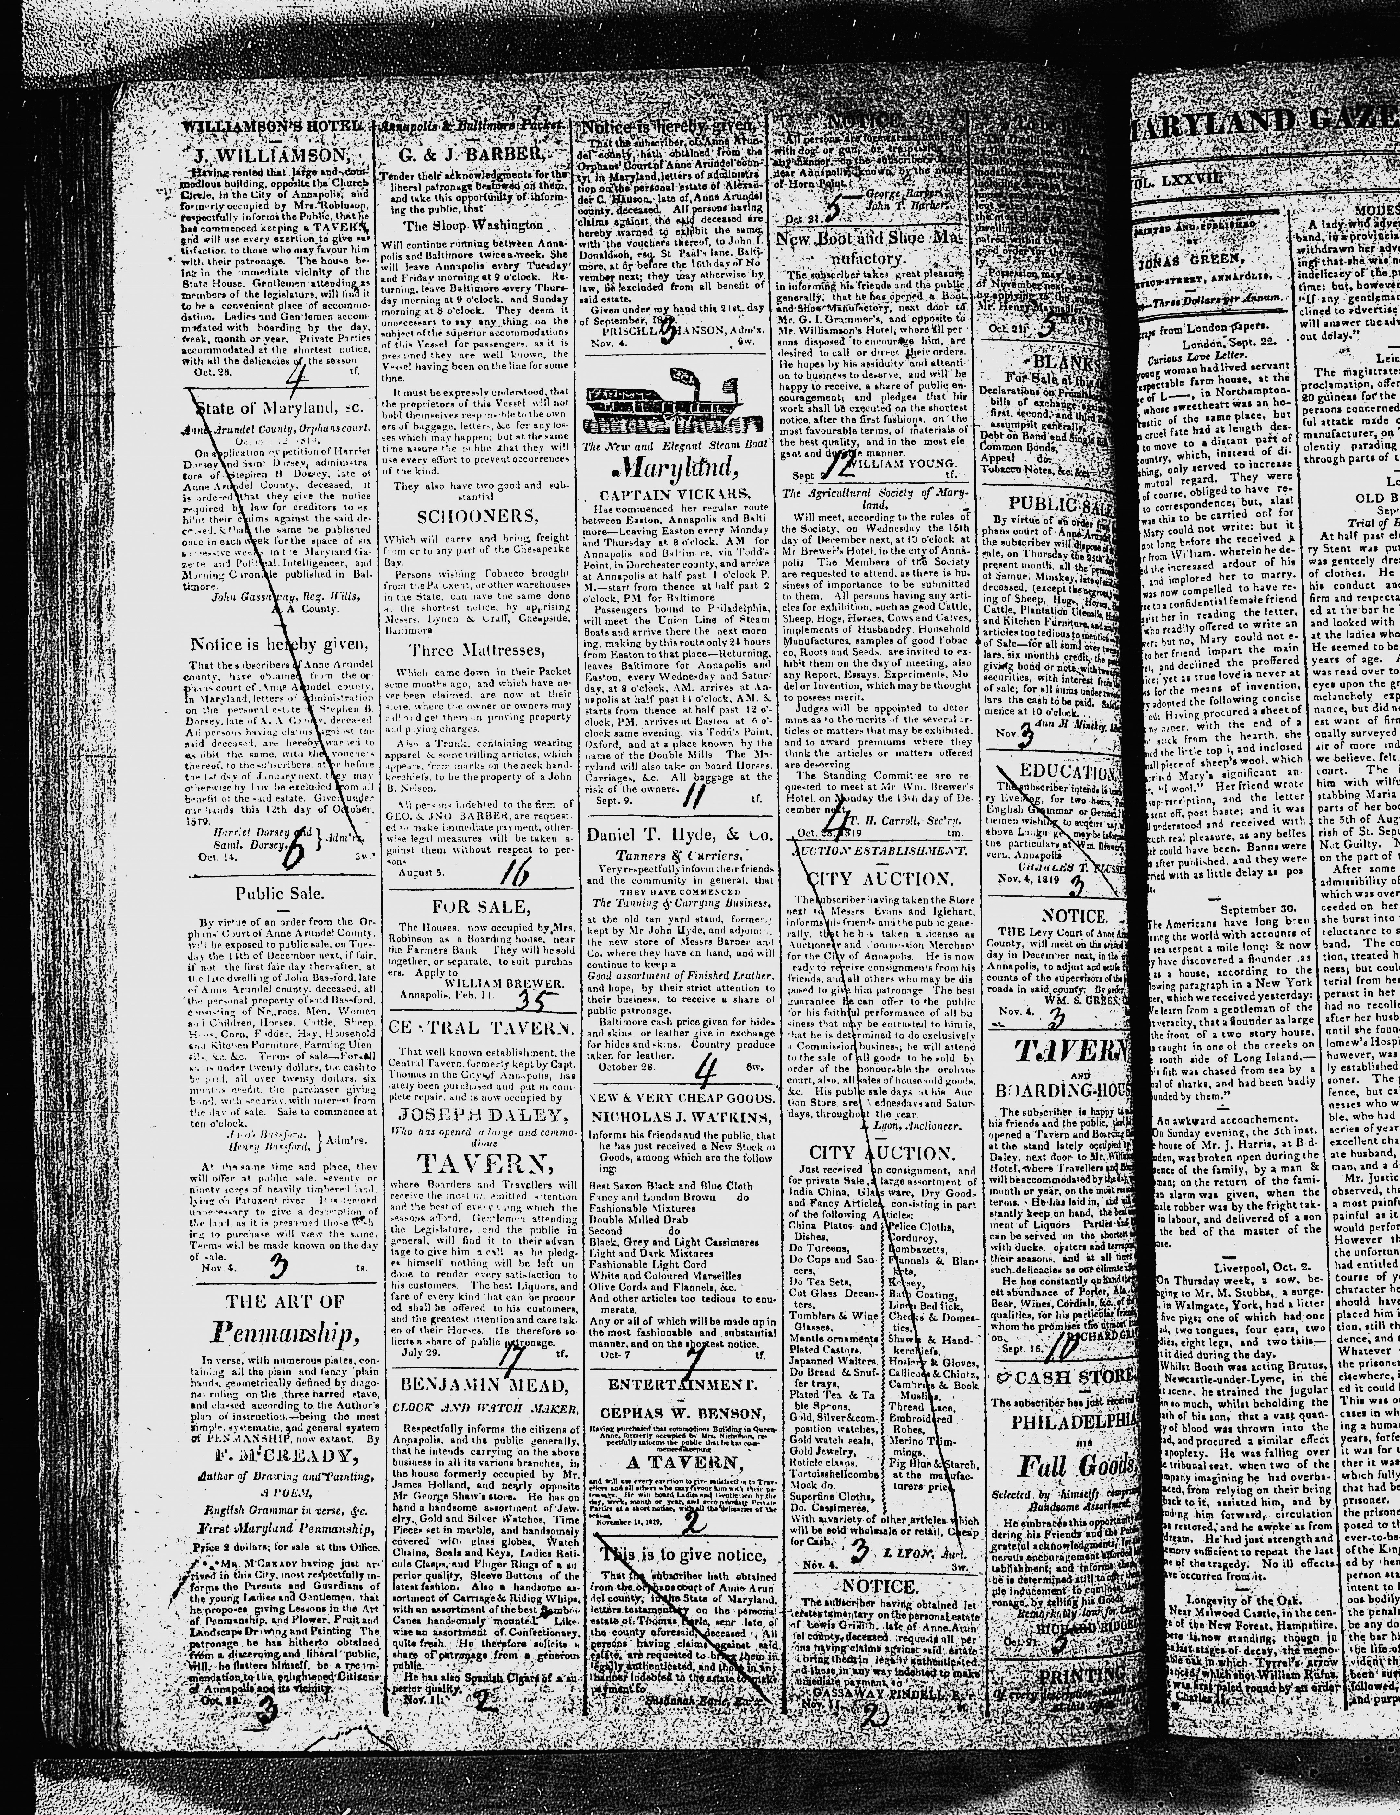 WILLIAMSON'S HOTEL.
J. WILLIAMSON,
Having rented that large and com-
modious building, opposite the Church
Circle, in the City of Annapolis, and
formerly occupied by Mrs. Robinson,
respectfully informs the Public, that he
has commenced keeping a TAVERN,
and will use every exertion to give sa-
tisfaction to those who may favour him
with their patronage. The house be-
ing in the immediate vicinity of the
State House. Gentlemen attending as
members of the legislature, will find it
to be a convenient place of accommo-
dation. Ladies and Gentlemen accom-
modated with boarding by the day,
week, month or year. Private Parties
accommodated at the shortest notice,
with all the delicacies of the season
Oct. 28. 4 tf.
State of Maryland, sc.
Anne Arundel County, Orphans court.
On application by petition of Harriet
Dorsey and Saml Dorsey, administra
tors of Stephen B. Dorsey, late of
Anne Arundel County, deceased, it
is ordered that they give the notice
required by law for creditors to ex
hibit their claims against the said de-
ceased, & that the same be published
once in each week for the space of six
successive weeks in the Maryland Ga-
zette and Political Intelligencer, and
Morning Chronicle published in Bal-
timore.
John Gassaway, Reg. Wills,
A. A County.
Notice is hereby given,
That the subscribers of Anne Arundel
county, have obtained from the or-
phans court of Anne Arundel county,
in Maryland, letters of administration
on the personal estate of Stephen B.
Dorsey, late of A. A County, deceased
All persons having claims against the
said deceased, are hereby warned to
exhibit the same, with the vouchers
thereof, to the subscribers, at or before
the 1st day of January next, they may
otherwise by law be excluded from all
benefit of the said estate. Given under
our hands this 12th day of October,
1819.
Harriet Dorsey and
Saml. Dorsey, } Adm'rs.
Oct. 14. 6 5w
Public Sale.
By virtue of an order from the Or-
phans' Court of Anne Arundel County,
will be exposed to public sale, on Tues-
day the 14th of December next, if fair,
if not the first fair day thereafter, at
the late dwelling of John Bassford, late
of Anne Arundel county, deceased, all
the personal property of said Bassford,
consisting of Negroes, Men, Women
and Children, Horses, Cattle, Sheep,
Hogs, Corn, Fodder, Hay, Household
and Kitchen Furniture, Farming Uten
sils, &c. &c. Terms of sale—For all
sums under twenty dollars, the cash to
be paid, all over twenty dollars, six
months credit, the purchaser giving
bond, with security, with interest from
the day of sale. Sale to commence at
ten o'clock.
Henry Bassford, } Adm'rs.
At the same time and place, they
will offer at public sale, seventy or
ninety acres of heavily timbered land
lying on Patuxent river. It is deemed
unnecessary to give a description of
the land as it is presumed those wish-
ing to purchase will view the same.
Terms will be made known on the day
of sale.
Nov 4. 3 ts.
THE ART OF
Penmanship,
In verse, with numerous plates, con-
taining all the plain and fancy plain
hands, geometrically defined by diago-
nal ruling on the three barred stave,
and classed according to the Author's
plan of instruction,—being the most
simple, systematic, and general system
of PENMANSHIP, now extant. By
F. McCREADY,
Author of Drawing and Painting,
A POEM,
English Grammar in verse, &c.
First Maryland Penmanship,
Price 2 dollars; for sale at this Office.
Mr. McCready having just ar-
rived in this City, most respectfully in-
forms the Parents and Guardians of
the young Ladies and Gentlemen, that
he proposes giving Lessons in the Art
of Penmanship, and Flower, Fruit and
Landscape Drawing and Painting The
patronage he has hitherto obtained
from a discerning and liberal public,
will, he flatters himself, be a recom-
mendation to the enlightened Citizens
of Annapolis and its vicinity.
Oct. 28. 3
Annapolis & Baltimore Packet.
G. & J. BARBER,
Tender their acknowledgments for the
liberal patronage bestowed on them,
and take this opportunity of inform-
ing the public, that
The Sloop Washington
Will continue running between Anna-
polis and Baltimore twice a week. She
will leave Annapolis every Tuesday
and Friday morning at 9 o'clock. Re-
turning, leave Baltimore every Thurs-
day morning at 9 o'clock, and Sunday
morning at 8 o'clock. They deem it
unnecessary to say any thing on the
subject of the superior accommodations
of this Vessel for passengers, as it is
presumed they are well known, the
Vessel having been on the line for some
time.
It must be expressly understood, that
the proprietors of this Vessel will not
hold themselves responsible to the own
ers of baggage, letters, &c. for any los-
ses which may happen; but at the same
time assure the public that they will
use every effort to prevent occurrences
of the kind.
They also have two good and sub-
stantial
SCHOONERS,
Which will carry and bring freight
from or to any part of the Chesapeake
Bay.
Persons wishing Tobacco brought
from the Patuxent, or other warehouses
in the State, can have the same done
at the shortest notice, by apprising
Messrs. Lynch & Craff, Cheapside,
Baltimore
Three Mattresses,
Which came down in their Packet
some months ago, and which have ne-
ver been claimed, are now at their
store, where the owner or owners may
call and get them on proving property
and paying charges.
Also a Trunk, containing wearing
apparel & some trifling articles, which
appears, from marks on the neck hand-
kerchiefs, to be the property of a John
B. Nelson.
All persons indebted to the firm of
GEO. & JNO BARBER, are request-
ed to make immediate payment, other-
wise legal measures will be taken a-
gainst them without respect to per-
sons
August 5. 16
FOR SALE,
The Houses, now occupied by Mrs.
Robinson as a Boarding house, near
the Farmers Bank They will be sold
together, or separate, to suit purchas
ers. Apply to
WILLIAM BREWER.
Annapolis, Feb. 11. 35
CENTRAL TAVERN.
That well known establishment, the
Central Tavern, formerly kept by Capt.
Thomas in the City of Annapolis, has
lately been purchased and put in com-
plete repair, and is now occupied by
JOSEPH DALEY,
Who has opened a large and commo-
dious
TAVERN,
where Boarders and Travellers will
receive the most unremitted attention
and the best of every thing which the
seasons afford. Gentlemen attending
the Legislature, and the public in
general, will find it to their advan
tage to give him a call as he pledg-
es himself nothing will be left un
done to render every satisfaction to
his customers. The best Liquors, and
fare of every kind that can be procur
ed shall be offered to his customers,
and the greatest attention and care tak-
en of their Horses. He therefore so-
licits a share of public patronage.
July 29. 17 tf.
BENJAMIN MEAD,
CLOCK AND WATCH MAKER,
Respectfully informs the citizens of
Annapolis, and the public generally,
that he intends carrying on the above
business in all its various branches, in
the house formerly occupied by Mr.
James Holland, and nearly opposite
Mr George Shaw's store. He has on
hand a handsome assortment of Jew-
elry, Gold and Silver Watches, Time
Pieces set in marble, and handsomely
covered with glass globes, Watch
Chains, Seals and Keys, Ladies Reti-
cule Clasps, and Finger Rings of a su
perior quality, Sleeve Buttons of the
latest fashion. Also a handsome as-
sortment of Carriage & Riding Whips,
with an assortment of the best Bamboo
Canes handsomely mounted. Like-
wise an assortment of Confectionary,
quite fresh. He therefore solicits a
share of patronage from a generous
public.
He has also Spanish Cigars of a su-
perior quality.
Nov. 11. 2
Notice is hereby given,
That the subscriber, of Anne Arun-
del county, hath obtained from the
Orphans' Court of Anne Arundel coun-
ty, in Maryland, letters of administra
tion on the personal estate of Alexan-
der C. Hanson, late of Anne Arundel
county, deceased. All persons having
claims against the said deceased are
hereby warned to exhibit the same,
with the vouchers thereof, to John I.
Donaldson, esq. St. Paul's lane, Balti-
more, at or before the 16th day of No
vember next; they may otherwise by
law, be excluded from all benefit of
said estate.
Given under my hand this 21st. day
of September, 18
PRISCILLA HANSON, Adm'x.
Nov. 4. 3 6w.
The New and Elegant Steam Boat
Maryland,
CAPTAIN VICKARS,
Has commenced her regular route
between Easton, Annapolis and Balti
more—Leaving Easton every Monday
and Thursday at 8 o'clock, AM for
Annapolis and Baltimore, via Todd's
Point, in Dorchester county, and arrive
at Annapolis at half past 1 o'clock P.
M.—start from thence at half past 2
o'clock, PM for Baltimore
Passengers bound to Philadelphia,
will meet the Union Line of Steam
Boats and arrive there the next morn
ing, making by this route only 24 hours
from Easton to that place—Returning,
leaves Baltimore for Annapolis and
Easton, every Wednesday and Satur-
day, at 8 o'clock, AM. arrives at An-
napolis at half past 11 o'clock, AM. &
starts from thence at half past 12 o'-
clock, PM. arrives at Easton at 6 o'-
clock same evening, via Todd's Point,
Oxford, and at a place known by the
name of the Double Mills The Ma-
ryland will also take on board Horses,
Carriages, &c. All baggage at the
risk of the owners.
Sept. 9. 11 tf.
Daniel T. Hyde, & Co.
Tanners & Curriers,
Very respectfully inform their friends
and the community in general, that
THEY HAVE COMMENCED
The Tanning & Currying Business,
at the old tan yard stand, formerly
kept by Mr John Hyde, and adjoining
the new store of Messrs Barber and
Co. where they have on hand, and will
continue to keep a
Good assortment of Finished Leather,
and hope, by their strict attention to
their business, to receive a share of
public patronage.
Baltimore cash price given for hides
and skins or leather give in exchange
for hides and skins. Country produce
taken for leather.
October 28. 4 8w.
NEW & VERY CHEAP GOODS.
NICHOLAS J. WATKINS,
Informs his friends and the public, that
he has just received a New Stock of
Goods, among which are the follow
ing:
Best Saxon Black and Blue Cloth
Fancy and London Brown do
Fashionable Mixtures
Double Milled Drab
Second do
Black, Grey and Light Cassimeres
Light and Dark Mixtures
Fashionable Light Cord
White and Coloured Marseilles
Olive Cords and Flannels, &c.
And other articles too tedious to enu-
merate.
Any or all of which will be made up in
the most fashionable and substantial
manner, and on the shortest notice.
Oct. 7 7 tf.
ENTERTAINMENT.
CEPHAS W. BENSON,
Having purchased that commodious Building in Queen-
Anne, formerly occupied by Mrs. Nicholson, re-
spectfully informs the public that he has com-
menced keeping
A TAVERN,
and will use every exertion to give satisfaction to Trav-
ellers and all others who may favour him with their pa-
tronage. He will board Ladies and Gentlemen by the
day, week, month or year, and accommodate Private
Parties at a short notice, with all the delicacies of the
season.
November 11, 1819. 2
This is to give notice,
That the subscriber hath obtained
from the orphans court of Anne Arun
del county, in the State of Maryland,
letters testamentary on the personal
estate of Thomas Earle, senr late of
the county aforesaid, deceased. All
persons having claims against said
estate, are requested to bring them in
legally authenticated, and those in any
manner indebted to the estate to make
payment to
Susannah Earle, Ex'x.
NOTICE.
All persons are forewarned hunting
with dog or gun, or trespassing in
any manner, on the subscribers farm
near Annapolis, known by the name
of Horn Point.
George Barber,
John T. Barber.
Oct. 21. 5
New Boot and Shoe Ma-
nufactory.
The subscriber takes great pleasure
in informing his friends and the public
generally, that he has opened a Boot
and Shoe Manufactory, next door to
Mr. G. I. Grammer's, and opposite to
Mr. Williamson's Hotel, where all per
sons disposed to encourage him, are
desired to call or direct their orders.
He hopes by his assiduity and attenti-
on to business to deserve, and will be
happy to receive, a share of public en-
couragement; and pledges that his
work shall be executed on the shortest
notice, after the first fashion, on the
most favourable terms, of materials of
the best quality, and in the most ele
gant and durable manner.
WILLIAM YOUNG.
Sept 12 tf.
The Agricultural Society of Mary-
land,
Will meet, according to the rules of
the Society, on Wednesday the 15th
day of December next, at 10 o'clock at
Mr Brewer's Hotel, in the city of Anna-
polis The Members of the Society
are requested to attend, as there is bu-
siness of importance to be submitted
to them. All persons having any arti-
cles for exhibition, such as good Cattle,
Sheep, Hogs, Horses, Cows and Calves,
implements of Husbandry, Household
Manufactures, samples of good Tobac
co, Roots and Seeds, are invited to ex-
hibit them on the day of meeting, also
any Report, Essays, Experiments, Mo
del or Invention, which may be thought
to possess merit.
Judges will be appointed to deter
mine as to the merits of the several ar-
ticles or matters that may be exhibited,
and to award premiums where they
think the articles or matters offered
are deserving
The Standing Committee are re
quested to meet at Mr Wm. Brewer's
Hotel, on Monday the 13th day of De-
cember next.
T. H. Carroll, Sec'ry.
Oct. 28, 1819 4 tm.
AUCTION ESTABLISHMENT.
CITY AUCTION.
The subscriber having taken the Store
next to Messrs Evans and Iglehart,
informs his friends and the public gene-
rally, that he has taken a license as
Auctioneer and Commission Merchant
for the City of Annapolis. He is now
ready to receive consignments from his
friends, and all others who may be dis
posed to give him patronage The best
guarantee he can offer to the public
for his faithful performance of all bu
siness that may be entrusted to him is,
that he is determined to do exclusively
a Commission business; he will attend
to the sale of all goods to be sold by
order of the honourable the orphans
court, also, all sales of household goods,
&c. His public sale days at his Auc
tion Store, are Wednesdays and Satur-
days, throughout the year.
I. Lyon, Auctioneer.
CITY AUCTION.
Just received on consignment, and
for private Sale, a large assortment of
India China, Glass ware, Dry Goods
and Fancy Articles, consisting in part
of the following Articles:
China Plates and
Dishes,
Do Tureens,
Do Cups and Sau-
cers,
Do Tea Sets,
Cut Glass Decan-
ters,
Tumblers & Wine
Glasses,
Mantle ornaments
Plated Castors,
Japanned Waiters,
Do Bread & Snuf-
fer trays,
Plated Tea & Ta
ble Spoons,
Gold, Silver & com-
position watches,
Gold watch seals,
Gold Jewelry,
Reticle clasps,
Tortoiseshell combs
Mock do.
Superfine Cloths,
Do. Cassimeres.
Pelice Cloths,
Corduroy,
Bombazetts,
Flannels & Blan-
kets,
Kersey,
Bath Coating,
Linen Bed tick,
Checks & Domes-
tics,
Shawls & Hand-
kerchiefs,
Hosiery & Gloves,
Callicoes & Chintz,
Cambrics & Book
Muslins,
Thread Lace,
Embroidered
Robes,
Merino Trim-
mings,
Fig Blue & Starch,
at the manufac-
turers price,
With a variety of other articles which
will be sold wholesale or retail, Cheap
for Cash.
I. LYON, Auct.
Nov. 4. 3 3w.
NOTICE.
The subscriber having obtained let
ters testamentary on the personal estate
of Lewis Griffith, late of Anne Arun
del county, deceased, requests all per
sons having claims against said estate
to bring them in legally authenticated
and those in any way indebted to make
immediate payment, to
GASSAWAY PINDELL, Ex.
Nov. 11. 2
Possession may be
of November next,
by applying to the
Mr. Henry
Oct. 21. 5
BLANKS
For Sale at this
Declarations on Promissory
bills of exchange against
first, second, and third
assumpsit generally.
Debt on Bond and Single Bill
Common Bonds,
Appeal do.
Tobacco Notes, &c. &c.
PUBLIC SALE.
By virtue of an order
phans court of Anne-Arundel
the subscriber will dispose of
sale, on Thursday the 25th
present month, all the
of Samuel Minskey, late
deceased, (except the negroes)
ing of Sheep, Hogs, Horses,
Cattle, Plantation Utensils
and Kitchen Furniture, and
articles too tedious to mention.
of Sale—for all sums over
lars, six months credit, the
giving bond or note, with
securities, with interest from
of sale; for all sums under
lars the cash to be paid.
mence at 10 o'clock.
Ann H Minskey,
Nov 3
EDUCATION
The subscriber intends
ry Evening, for two hours,
English Grammar
above
the particulars at Wm Brewer's
vern, Annapolis
CHARLES T.
Nov. 4, 1819 3
NOTICE.
THE Levy Court of Anne
County, will meet on the
day in December next, in the
Annapolis, to adjust and settle
counts of the supervisors of the
roads in said county. By order,
WM. S. GREEN,
Nov. 4. 3
TAVERN
AND
BOARDING-HOUSE
The subscriber is happy to
his friends and the public,
opened a Tavern and Boarding
at the stand lately occupied
Daley, next door to Mr. Williamson's
Hotel, where Travellers and
will be accommodated by the
month or year, on the most
terms. He has laid in, and
stantly keep on hand, the best
ment of Liquors Parties
can be served on the shortest
with ducks, oysters and terrapins
their seasons, and at all times
such delicacies as our climate
He has constantly on hand
est abundance of Porter, Ale,
Beer, Wines, Cordials, &c. of
qualities, for his particular friends
whom he promises the utmost
on.
RICHARD
Sept. 16. 10
CASH STORE
The subscriber has just received
PHILADELPHIA
HIS
Fall Goods,
Selected by himself,
Handsome Assortment
He embraces this opportunity
dering his Friends and the
grateful acknowledgments
RICHARD RIDGELY
Oct. 21. 5
PRINTING
Of every description
MARYLAND GAZE
VOL. LXXVII
PRINTED AND PUBLISHED
BY
JONAS GREEN,
CHURCH-STREET, ANNAPOLIS.
Three Dollars per Annum.
from London papers.
London, Sept. 22.
Curious Love Letter.
young woman had lived servant
respectable farm house, at the
of L——, in Northampton-
whose sweetheart was an ho-
rustic of the same place, but
cruel fate had at length des-
to move to a distant part of
country, which, instead of di-
ing, only served to increase
mutual regard. They were
of course, obliged to have re-
to correspondence; but, alas!
was this to be carried on? for
Mary could not write: but it
not long before she received a
from William, wherein he de-
the increased ardour of his
and implored her to marry.
was now compelled to have re-
to a confidential female friend
ist her in reading the letter,
who readily offered to write an
er; but no, Mary could not e-
to her friend impart the main
and declined the proffered
ce; yet as true love is never at
for the means of invention,
adopted the following concise
Having procured a sheet of
paper, with the end of a
stick from the hearth, she
the little top i, and inclosed
small piece of sheep's wool, which
Mary's significant an-
"I wool." Her friend wrote
superscription, and the letter
sent off, post haste; and it was
understood and received with
much real pleasure, as any belles
could have been. Banns were
after published, and they were
ried with as little delay as pos
September 30.
The Americans have long been
ing the world with accounts of
serpent a mile long: & now
have discovered a flounder as
as a house, according to the
following paragraph in a New York
er, which we received yesterday:
We learn from a gentleman of the
veracity, that a flounder as large
the front of a two story house,
caught in one of the creeks on
south side of Long Island.—
fish was chased from sea by a
of sharks, and had been badly
wounded by them."
An awkward accouchement.
On Sunday evening, the 5th inst.
house of Mr. J. Harris, at Bid-
den, was broken open during the
absence of the family, by a man &
woman; on the return of the fami-
alarm was given, when the
male robber was by the fright tak-
in labour, and delivered of a son
the bed of the master of the
house.
Liverpool, Oct. 2.
On Thursday week, a sow, be-
longing to Mr. M. Stubbs, a surge-
in Walmgate, York, had a litter
five pigs; one of which had one
two tongues, four ears, two
bodies, eight legs, and two tails—
it died during the day.
Whilst Booth was acting Brutus,
Newcastle-under-Lyme, in the
scene, he strained the jugular
so much, whilst beholding the
death of his son, that a vast quan-
of blood was thrown into the
and procured a similar effect
apoplexy. He was falling over
tribunal seat, when two of the
company imagining he had overba-
lanced, from relying on their being
back to it, assisted him, and by
ing him forward, circulation
restored; and he awoke as from
dream. He had just strength and
memory sufficient to repeat the last
of the tragedy. No ill effects
have occurred from it.
Longevity of the Oak.
Near Malwood Castle, in the cen-
of the New Forest, Hampshire,
is now standing, though in
stages of decay, the memo-
oak in which Tyrrel's arrow
glanced, which shot William Rufus.
was first paled round by an order
Charles II.
MODES
A lady who advert
band, in a provincial
withdrawn her adve
ing! that she was no
indelicacy of the pr
time: but, however
"If any gentlema
clined to advertise
will answer the
out delay."
Leic
The magistrate
proclamation, offe
20 guineas for the
persons concerne
ful attack made
manufacturer, on
olently parading
through parts of
Lo
OLD B
Sept
Trial of
At half past el
ry Stent was put
was genteely dre
of clothes. He
his conduct an
firm and respecta
ed at the bar he
and looked with
at the ladies who
He seemed to be
years of age.
was read over to
eyes upon the gr
melancholy exp
nance, but did ne
est want of firm
onally surveyed
air of more ind
we believe, felt
court. The
him with wilfu
stabbing Maria
parts of her bod
the 5th of Aug
rish of St. Sep
Not Guilty. N
on the part of
After some
admissibility of
which was over
ceeded on her
she burst into
reluctance to s
band. The co
tion, treated h
ness; but coul
terial from her
persist in her
had no recolle
after her husb
until she foun
lomew's Hospi
however, was
ly established
soner. The
fence, but ca
nesses who w
ble, who had
series of year
excellent cha
ate husband,
man, and a d
Mr. Justic
observed, tha
a most painfu
painful as it
would perfor
However th
the unfortun
had entitled
course of yo
character he
should have
placed him i
tion, still th
dence, and t
Whatever
the prisone
elsewhere, i
ed it could
This was o
cases in wh
ing a huma
years, forfe
it was for t
er that it w
which fully
that had be
prisoner.
the prisone
posed to t
ever-to-ba
of the King
ed by ther
person at
intent to
ous bodily
the penal
or any do
the bar hi
ing with
vident th
been suc
followed,
and purp